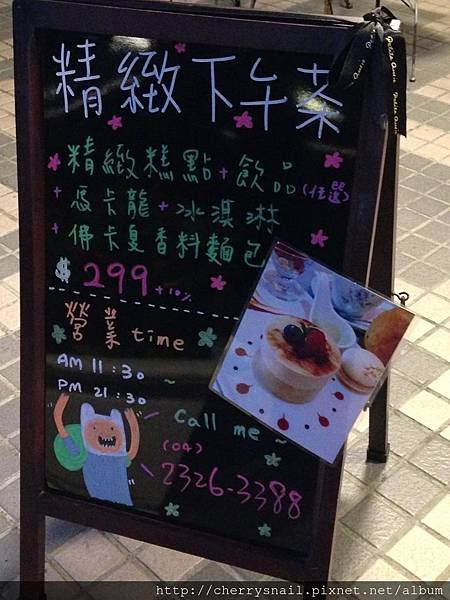 精緻下午茶
精緻糕點+飲品(任選)
+馬卡龍+冰淇淋
+佛卡夏香料麵包
$299+10%
營業time
AM 11:30 ~
PM 21:30
Call me ~
(04)
2326-3388
http://cherrysnail.pixnet.net/album